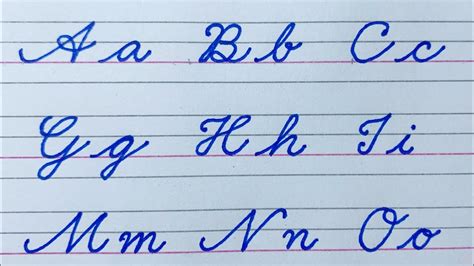 Aa Bb Cc
Gg Hh Ii
Mm Nn Oo